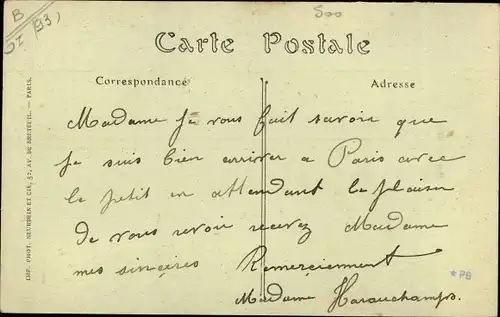 B
OI (93)
500
Carte Postale
Correspondance
Adresse
Madame je vous fait savoir que
je suis bien arriver a Paris avec
le petit en attendant le plaisir
de vous revoir recevez Madame
mes sincères Remerciement
Madame Harauchamps.
*PB
IMP. PHOT. NEURDEIN ET CIE, 52, AV. DE BRETEUIL. — PARIS.